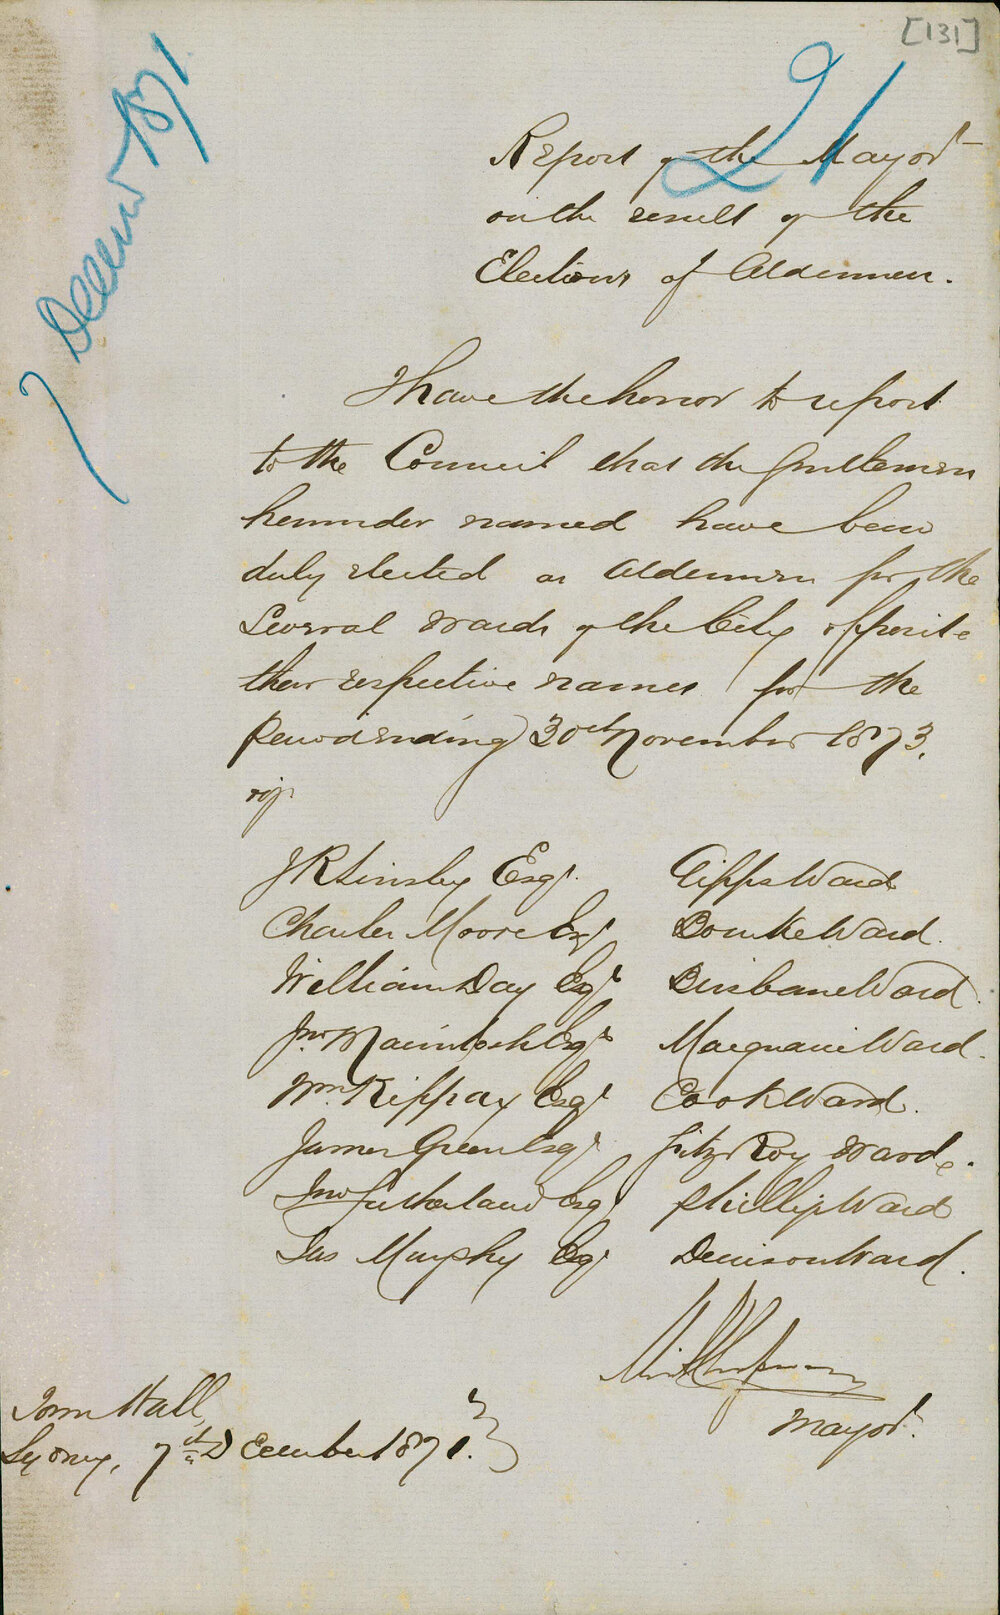 [131]
21
7 December 1871
Report of the Mayor
on the result of the
Elections of Aldermen.
I have the honor to report
to the Council that the Gentlemen
hereunder named have been
duly elected as Aldermen for the
Several Wards of the City opposite
their respective names for the
Period ending 30th November 1873.
viz
J R Linsley Esqr. Gipps Ward
Charles Moore Esqr Bourke Ward.
William Day Esqr Brisbane Ward.
Jno Macintosh Esqr Macquarie Ward.
Wm. Kippax Esqr Cook Ward.
James Green Esqr FitzRoy Ward.
Jno Sutherland Esqr Phillip Ward
Jas Murphy Esqr Denison Ward.
Mayor.
Town Hall,
Sydney, 7th December 1871.